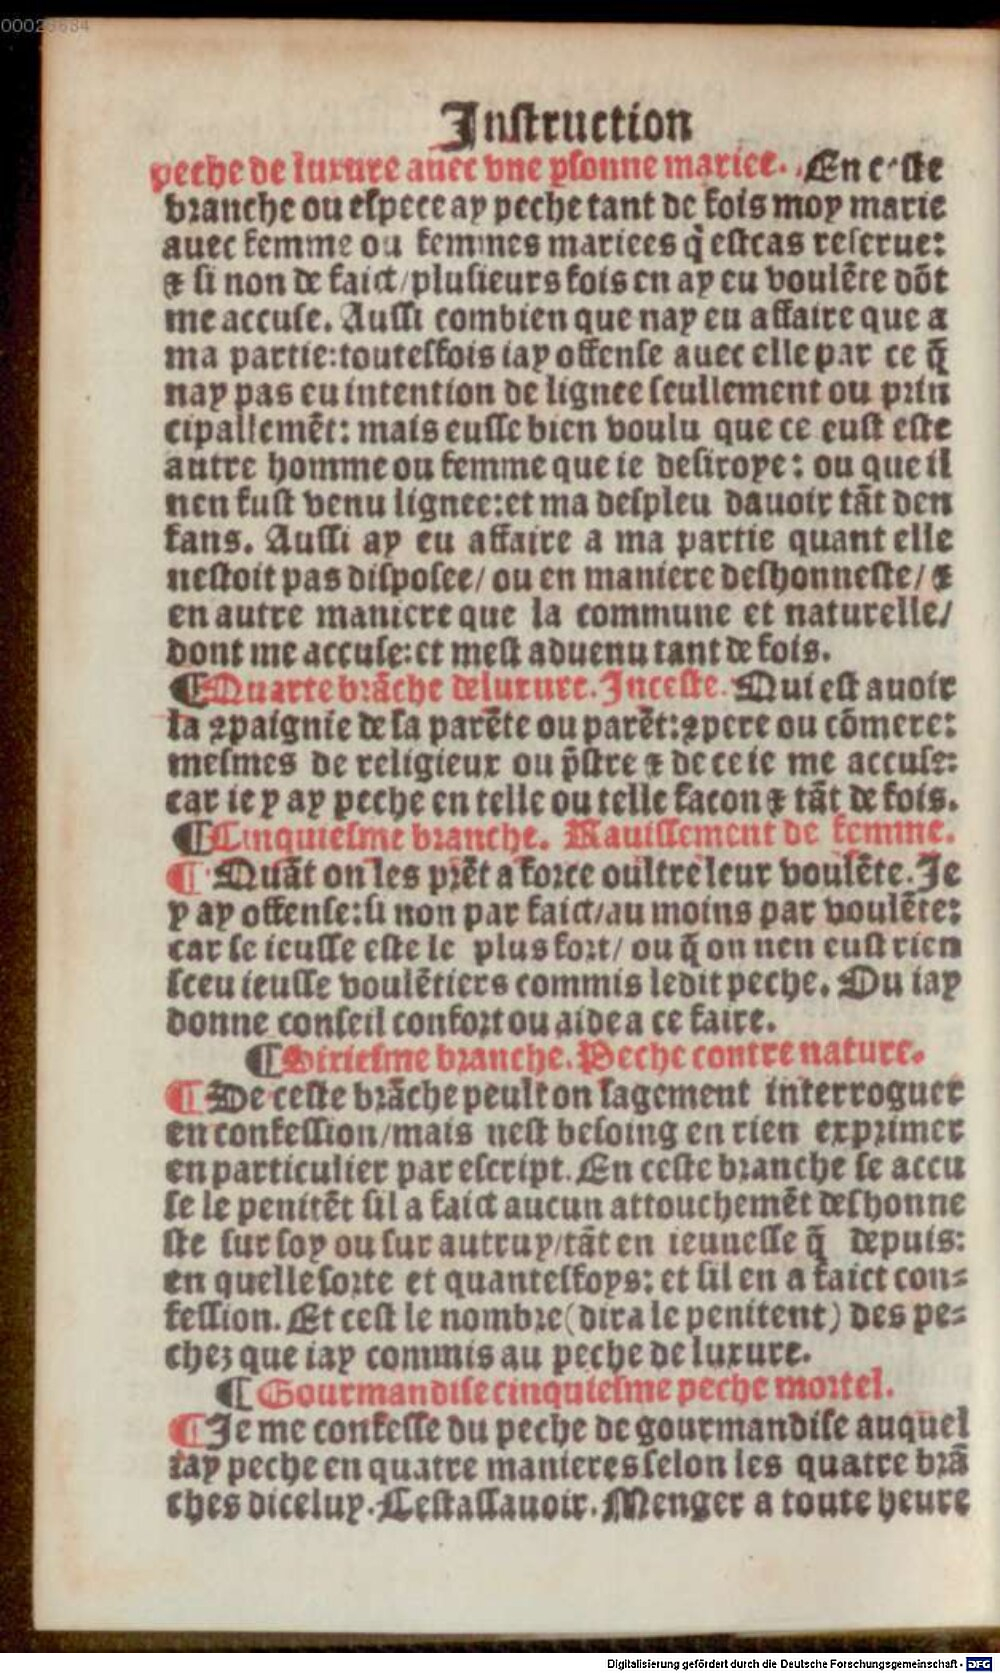 00023634
Instruction
peche de luxure auec vne psonne mariee. En ceste
branche ou espece ay peche tant de fois moy marie
auec femme ou femmes mariees q̃ est cas reserue:
⁊ si non de faict/plusieurs fois en ay eu voulẽte dõt
me accuse. Aussi combien que nay eu affaire que a
ma partie:toutesfois iay offense auec elle par ce q̃
nay pas eu intention de lignee seullement ou prin
cipallemẽt: mais eusse bien voulu que ce eust este
autre homme ou femme que ie desiroye: ou que il
nen fust venu lignee:et ma despleu dauoir tãt den
fans. Aussi ay eu affaire a ma partie quant elle
nestoit pas disposee/ ou en maniere deshonneste/ ⁊
en autre maniere que la commune et naturelle/
dont me accuse:et mest aduenu tant de fois.
¶Quarte brãche de luxure. Inceste. Qui est auoir
la ꝯpaignie de sa parẽte ou parẽt:ꝯpere ou cõmere:
mesmes de religieux ou p̃stre ⁊ de ce ie me accuse:
car ie y ay peche en telle ou telle facon ⁊ tãt de fois.
¶Cinquiesme branche. Rauissement de femme.
¶Quãt on les prẽt a force oultre leur voulẽte. Je
y ay offense:si non par faict/au moins par voulẽte:
car se ieusse este le plus fort/ ou q̃ on nen eust rien
sceu ieusse voulẽtiers commis ledit peche. Ou iay
donne conseil confort ou aide a ce faire.
¶Sixiesme branche. Peche contre nature.
¶De ceste brãche peult on sagement interroguer
en confession/mais nest besoing en rien exprimer
en particulier par escript. En ceste branche se accu
se le penitẽt sil a faict aucun attouchemẽt deshonne
ste sur soy ou sur autruy/tãt en ieunesse q̃ depuis:
en quelle sorte et quantesfoys: et sil en a faict con=
fession. Et cest le nombre (dira le penitent) des pe=
chez que iay commis au peche de luxure.
¶Gourmandise cinquiesme peche mortel.
¶Je me confesse du peche de gourmandise auquel
iay peche en quatre manieres selon les quatre brã
ches dicelluy. Cest assauoir. Menger a toute heure
Digitalisierung gefördert durch die Deutsche Forschungsgemeinschaft - DFG